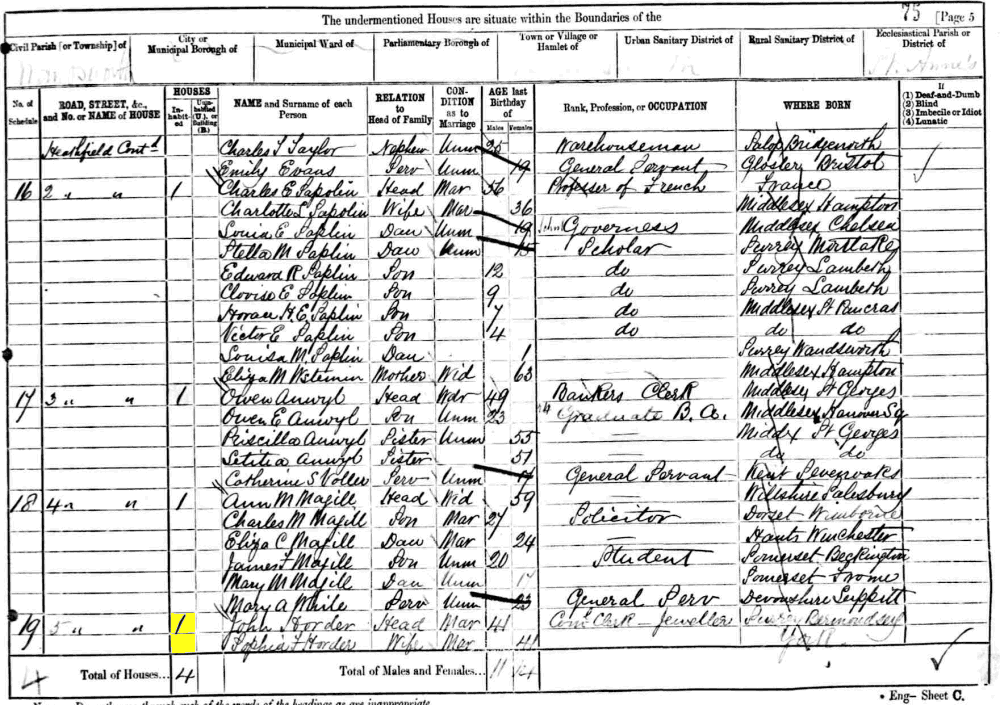 The undermentioned Houses are situate within the Boundaries of the 75 [Page 5
Civil Parish [or Township] of
City or Municipal Borough of
Municipal Ward of
Parliamentary Borough of
Town or Village or Hamlet of
Urban Sanitary District of
Rural Sanitary District of
Ecclesiastical Parish or District of
St. Anne's
No. of Schedule
ROAD, STREET, &c., and No. or NAME of HOUSE
HOUSES
Inhabited
Uninhabited (U.), or Building (B.)
NAME and Surname of each Person
RELATION to Head of Family
CONDITION as to Marriage
AGE last Birthday of
Males Females
Rank, Profession, or OCCUPATION
WHERE BORN
If
(1) Deaf-and-Dumb
(2) Blind
(3) Imbecile or Idiot
(4) Lunatic
Heathfield Contd Charles T Taylor Nephew Unm 25 Warehouseman Salop Bridgenorth
Emily Evans Serv Unm 19 General Servant Gloster Bristol
16 2 " " 1 Charles E Saplin Head Mar 56 Professor of French France
Charlotte L Saplin Wife Mar 36 Middlesex Hampton
Louia E Saplin Dau Unm 19 Governess Middlesex Chelsea
Stella M Saplin Dau Unm 15 Scholar Surrey Mortlake
Edward R Saplin Son 12 do Surrey Lambeth
Clovise E Saplin Son 9 do Surrey Lambeth
Horace H. E Saplin Son 7 do Middlesex St Pancras
Victor E Saplin Son 4 do do do
Louisa M Saplin Dau 1 Surrey Wandsworth
Eliza M Mother Wid 63 Middlesex Hampton
17 3 " " 1 Owen Anwyl Head Wdr 49 Bankers Clerk Middlesex St Georges
Owen E Anwyl Son Unm 23 Graduate B.A. Middlesex Hanover Sq
Priscilla Anwyl Sister Unm 55 Middx St Georges
Letitia Anwyl Sister 51 do do
Catherine S Voller Serv Unm 17 General Servant Kent Sevenoaks
18 4 " " 1 Ann M Magill Head Wid 59 Wiltshire Salesbury
Charles M Magill Son Mar 27 Solicitor Dorset Wimborne
Eliza C Magill Dau Mar 24 Hants Winchester
James F Magill Son Unm 20 Student Somerset Beckington
Mary M Magill Dau Unm 17 Somerset Frome
Mary A Serv Unm 23 General Serv Devonshire
19 5 " " 1 John Horder Head Mar 41 Coml Clerk - Jeweller Surrey Bermondsey
Sophia F Horder Wife Mar 41 York
4 Total of Houses... 4 Total of Males and Females... 11 14
• Eng– Sheet C.